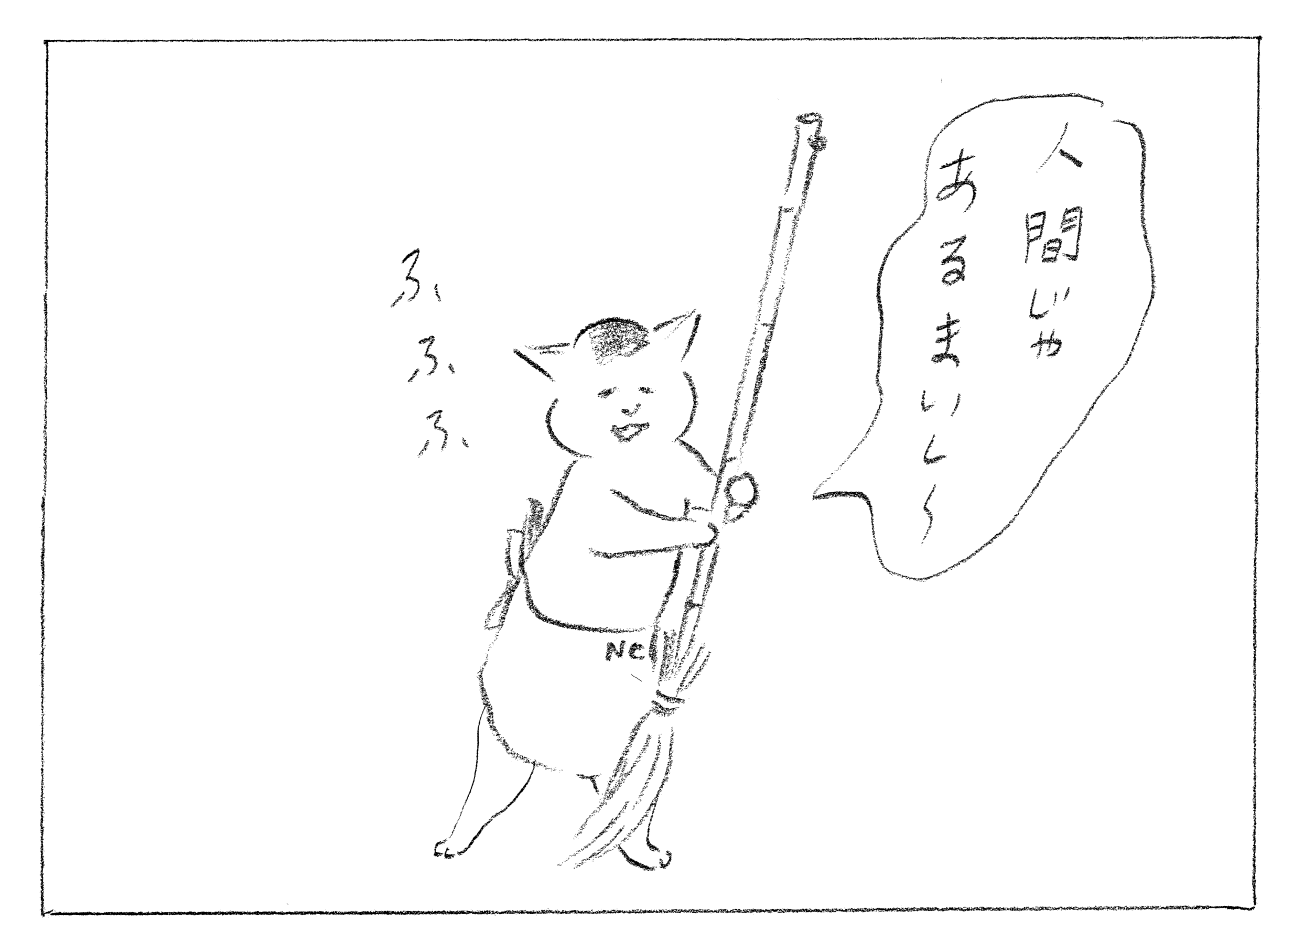 人間じゃ
あるまいし〜
ふ、
ふ、
ふ、
Ne